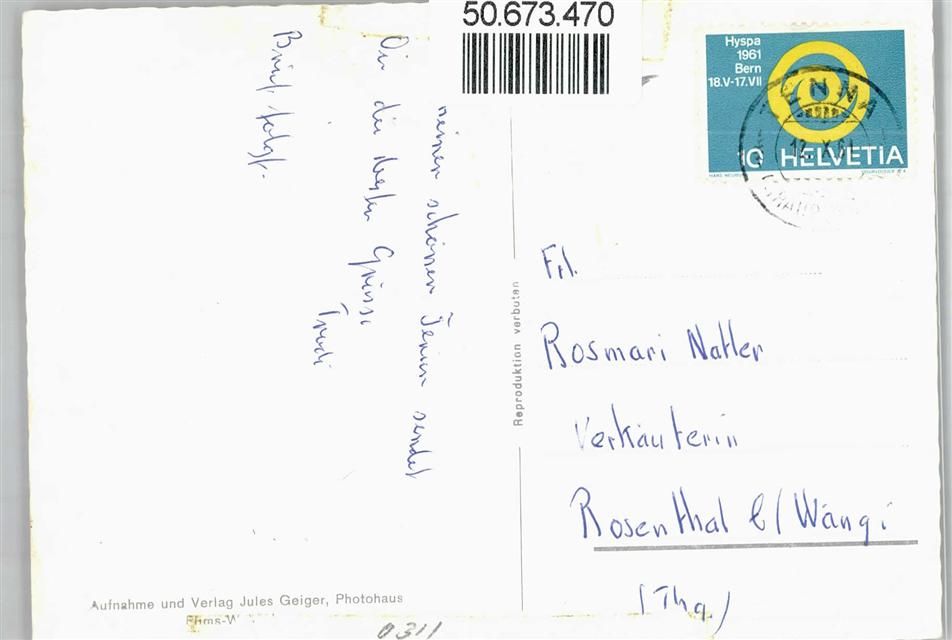 50.673.470
Hyspa
1961
Bern
18.V-17.VII
10 HELVETIA
TENNA
meinen schönen Ferien sendet
Dir die besten Grüsse
Trudi
Brief folgt.
Reproduktion verboten
Frl.
Rosmari Natter
Verkäuferin
Rosenthal b/Wängi
(Thg.)
Aufnahme und Verlag Jules Geiger, Photohaus
Flims-W
0311